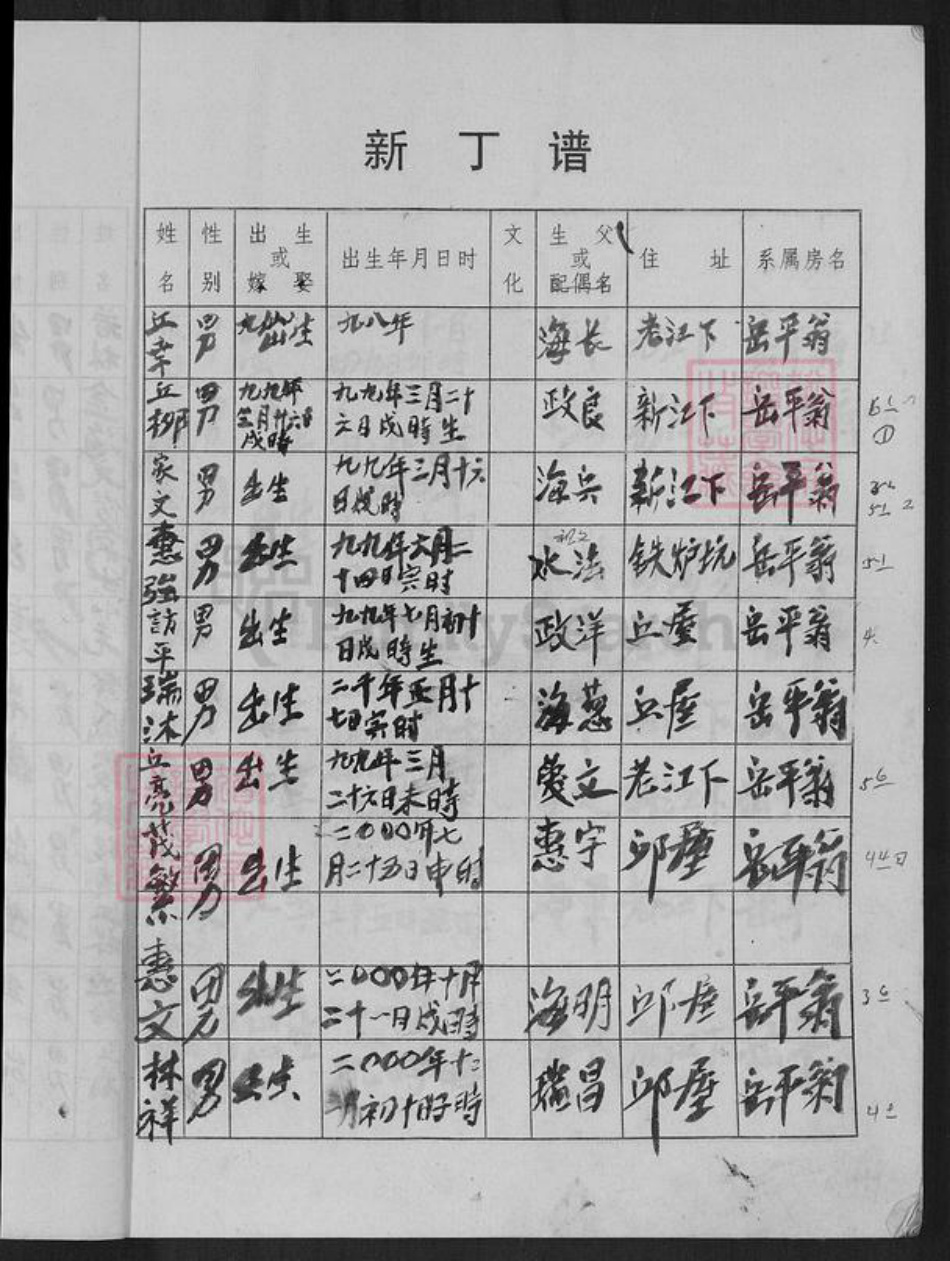 新丁谱
姓名 性别 出生或嫁娶 出生年月日时 文化 生父或配偶名 住址 系属房名
丘 男 生 九八年 海长 老江下 岳平翁
丘柳 男 九九年三月廿六日戌時 九九年三月二十六日戌時生 政良 新江下 岳平翁
家文 男 出生 九九年三月十六日戌時 海兵 新江下 岳平翁
惠強 男 出生 九九年六月二十四日寅时 祖父 水法 铁炉坑 岳平翁 51
訪平 男 出生 九九年七月初十日戌時生 政洋 丘屋 岳平翁
瑞沐 男 出生 二千年五月十七日寅时 海葱 丘屋 岳平翁
丘亮 男 出生 九九年三月二十六日未時 文 老江下 岳平翁
茂繁 男 出生 二000年七月二十五日申时 惠宇 邱屋 岳平翁
惠文 男 出生 二000年十月二十一日戌時 海明 邱屋 岳平翁
林祥 男 出生 二000年十二月初十 時 瑞昌 邱屋 岳平翁
FamilySearch